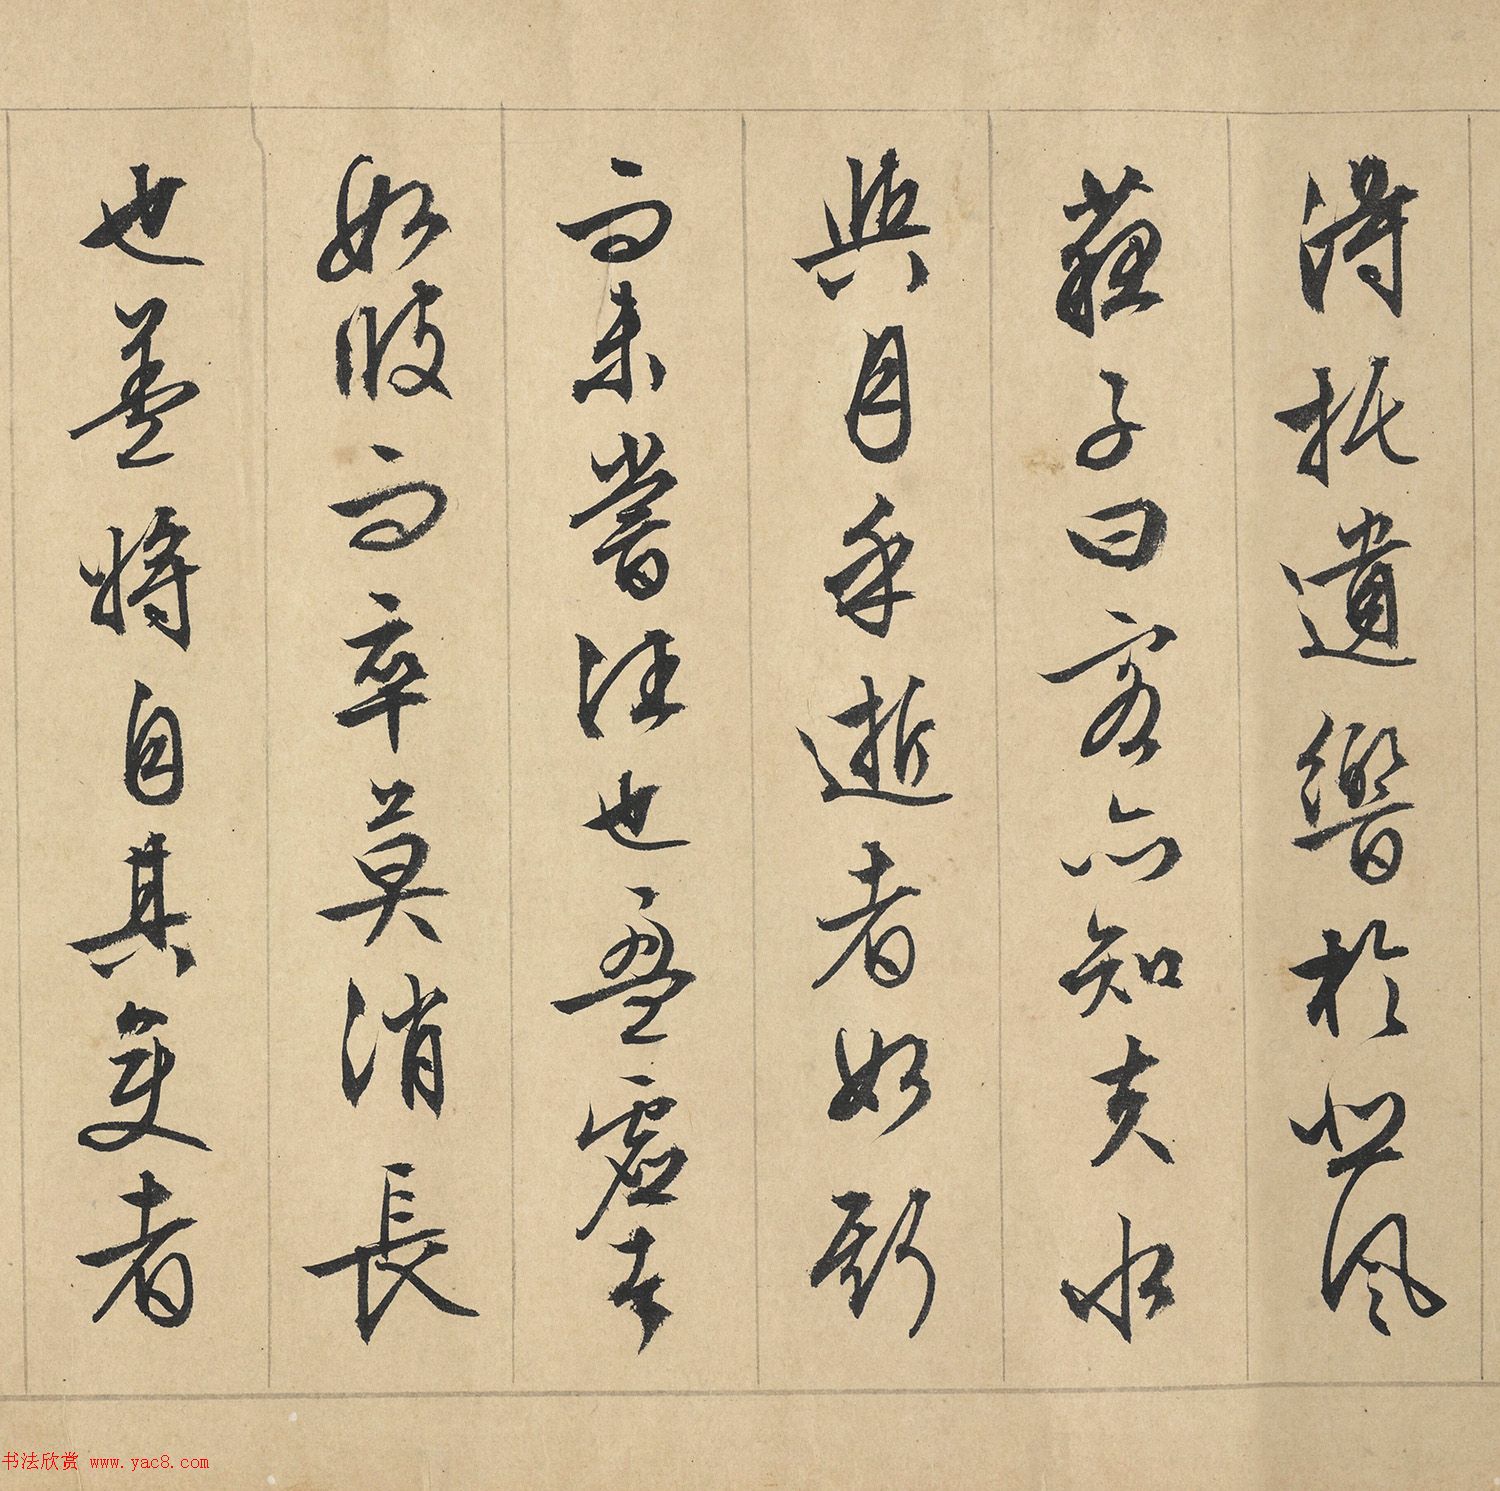 得托遺響於悲風
蘇子曰客亦知夫水
與月乎逝者如斯
而未嘗往也盈虛者
如彼而卒莫消長
也盖將自其變者
书法欣赏 www.yac8.com